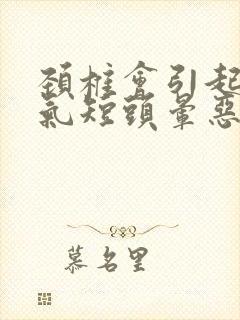 頚椎會引起
氣短頭暈惡
慕名里